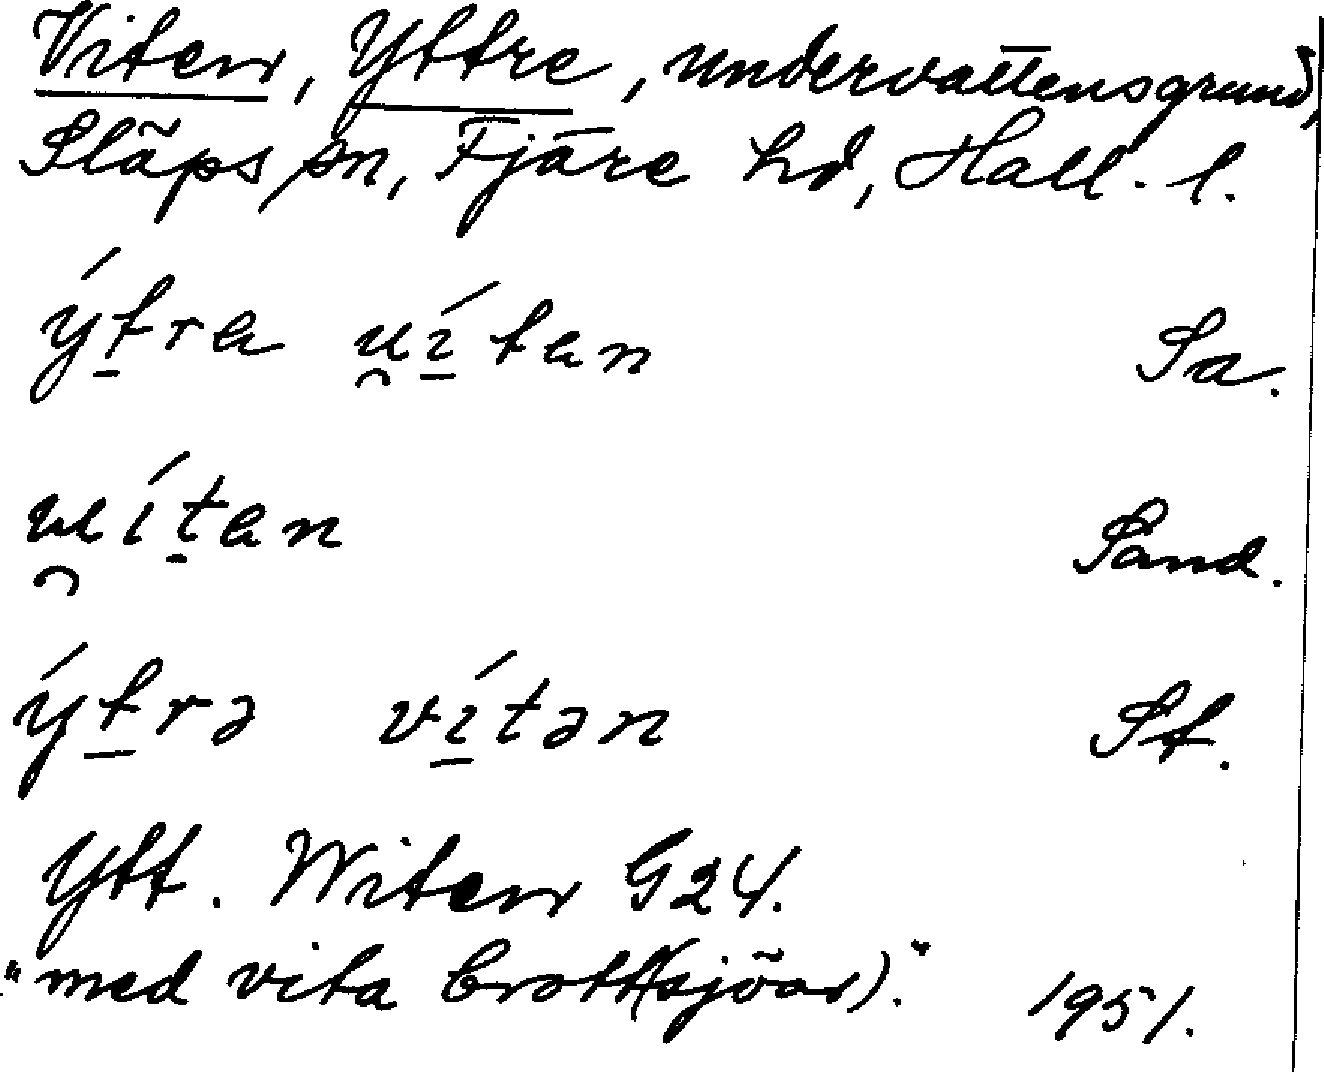 Viten, Yttre, undervattensgrund,
Släps sn, Fjäre hd, Hall. l.
ýtra u̯ítan Sa.
u̯ítan Sand.
ýtrə vítən St.
Ytt. Witen G24.
"med vita brott(sjöar)." 1951.